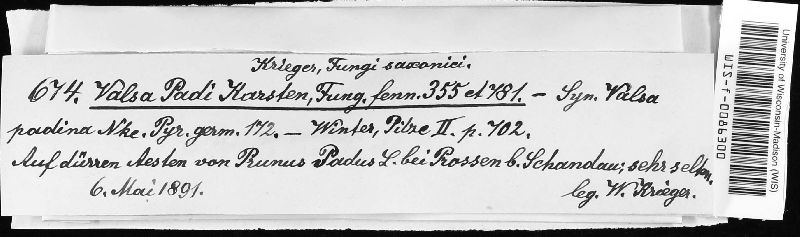 Krieger, Fungi saxonici.
674. Valsa Padi Karsten, Fung. fenn. 355 et 781. – Syn. Valsa
padina Nke. Pyr. germ. 172. – Winter, Pilze II. p. 702.
Auf dürren Aesten von Prunus Padus L. bei Prossen b. Schandau; sehr selten.
6. Mai 1891.
leg. W. Krieger.
University of Wisconsin-Madison (WIS)
WIS-f-0086300